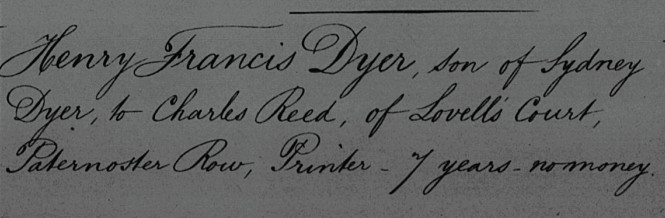 Henry Francis Dyer, son of Sydney
Dyer, to Charles Reed, of Lovell's Court,
Paternoster Row, Printer - 7 years - no money.